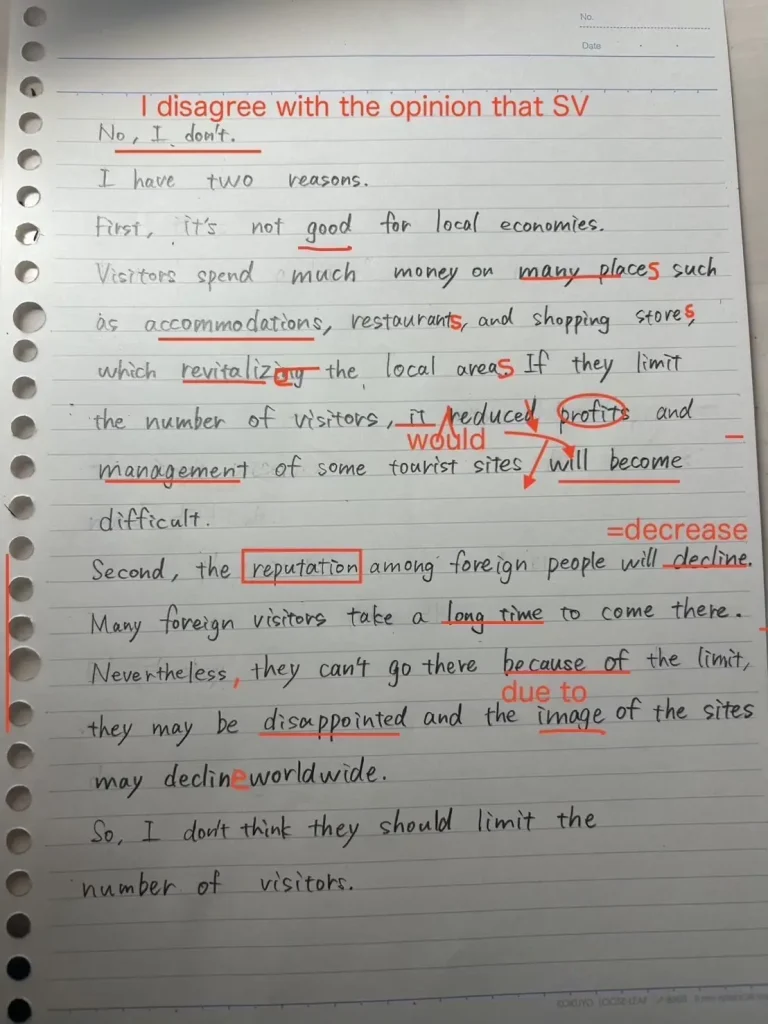 No.
Date
I disagree with the opinion that SV
No, I don't.
I have two reasons.
First, it's not good for local economies.
Visitors spend much money on many places such
as accommodations, restaurants, and shopping stores,
which revitalize the local areas. If they limit
the number of visitors, it reduced profits and
would
management of some tourist sites will become
difficult.
=decrease
Second, the reputation among foreign people will decline.
Many foreign visitors take a long time to come there.
Nevertheless, they can't go there because of the limit,
due to
they may be disappointed and the image of the sites
may decline worldwide.
So, I don't think they should limit the
number of visitors.